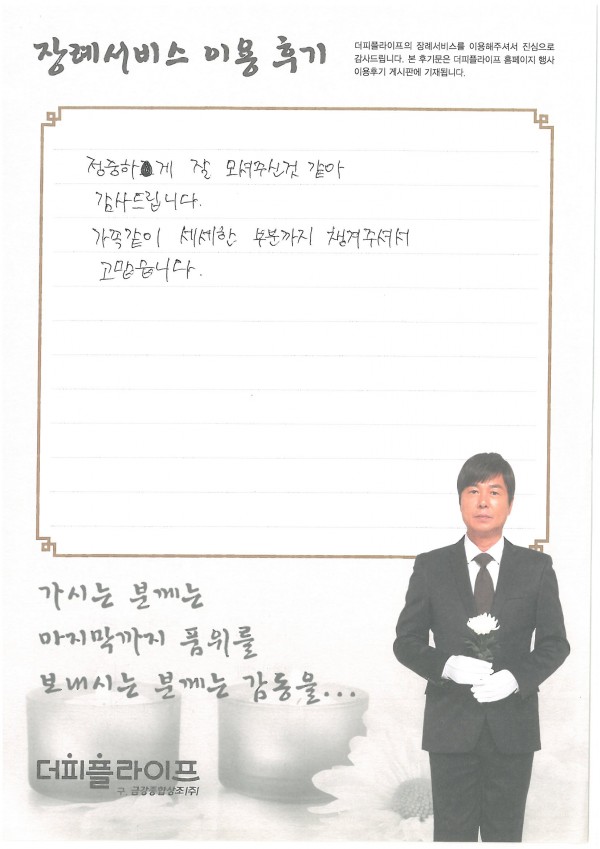 장례서비스 이용 후기
더피플라이프의 장례서비스를 이용해주셔서 진심으로
감사드립니다. 본 후기문은 더피플라이프 홈페이지 행사
이용후기 게시판에 기재됩니다.
정중하게 잘 모셔주신것 같아
감사드립니다.
가족같이 세세한 부분까지 챙겨주셔서
고맙습니다.
가시는 분께는
마지막까지 품위를
보내시는 분께는 감동을...
더피플라이프
구 금강종합상조(주)